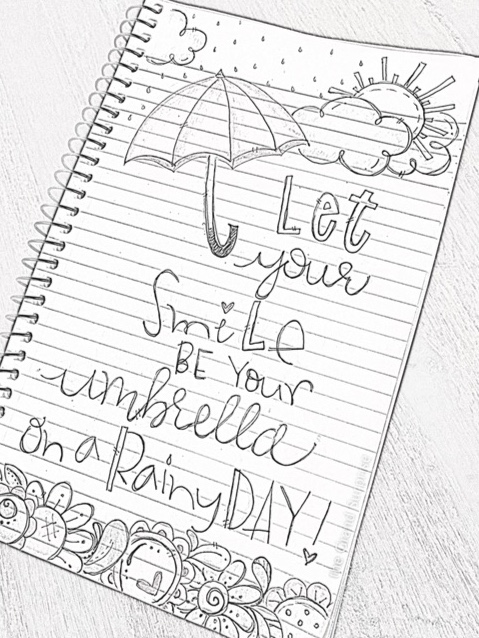 Let
your
Smile
BE Your
umbrella
on a Rainy DAY!